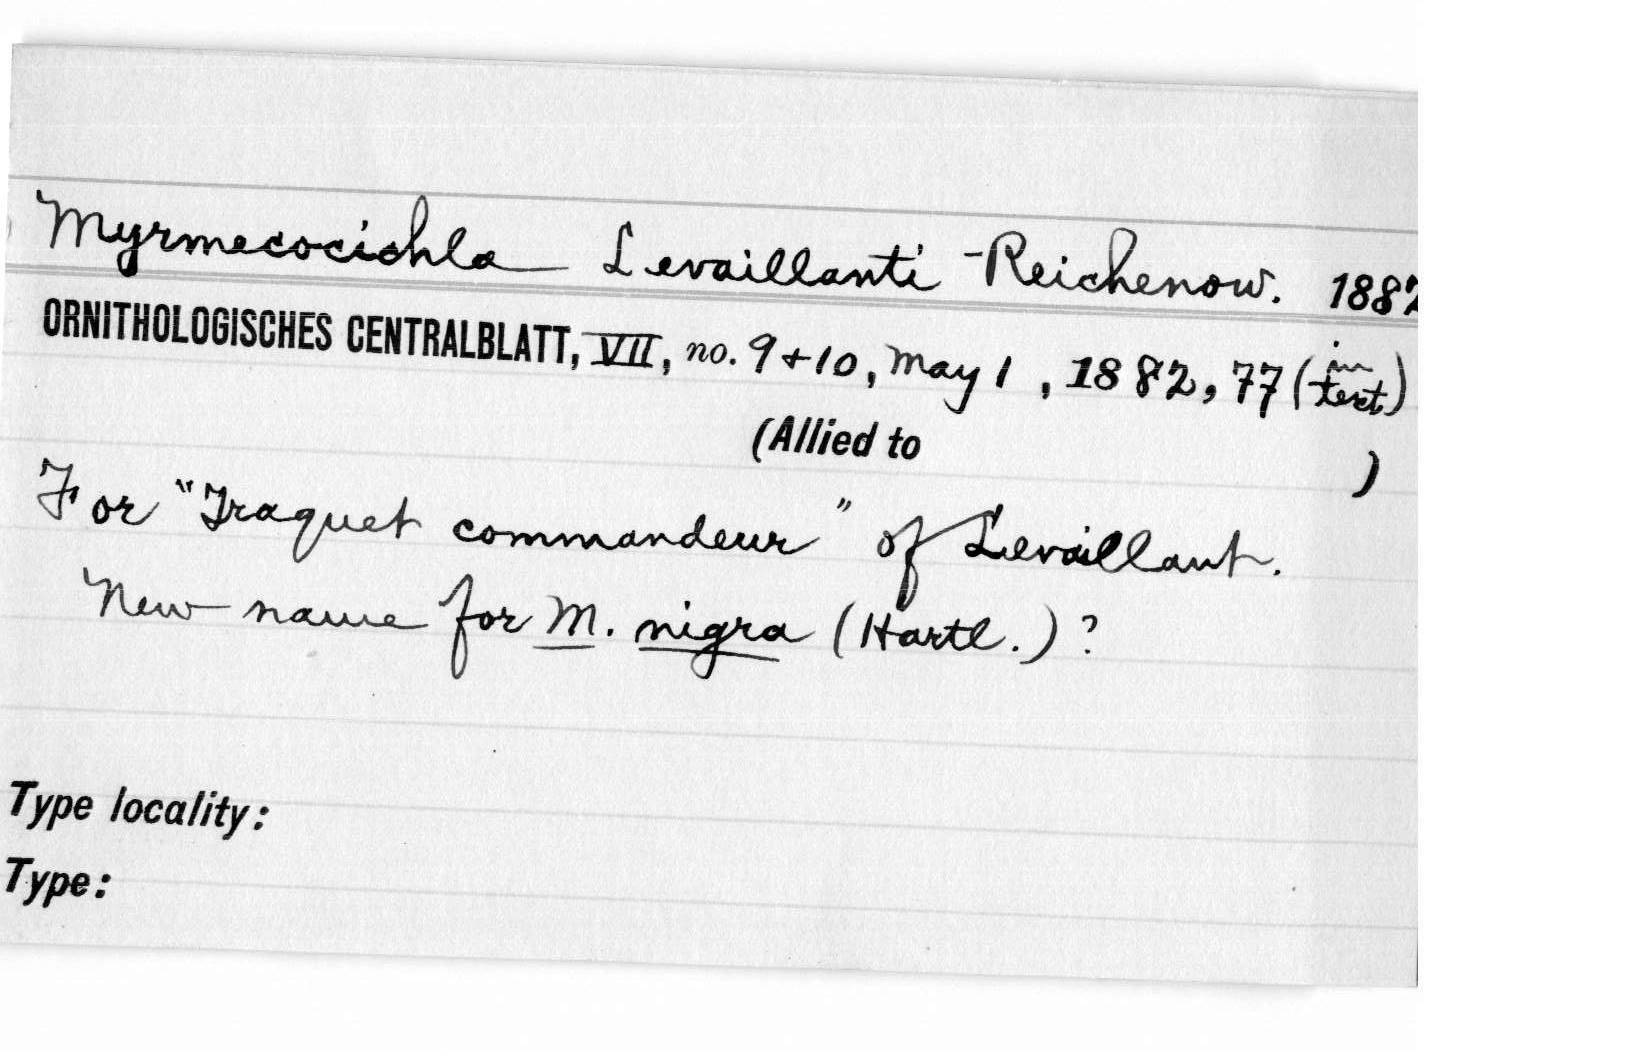 Myrmecocichla Levaillanti Reichenow. 1882
ORNITHOLOGISCHES CENTRALBLATT, VII, no. 9+10, May 1, 1882, 77 (in text)
(Allied to )
For "Traquet commandeur" of Levaillant.
New name for M. nigra (Hartl.)?
Type locality:
Type: